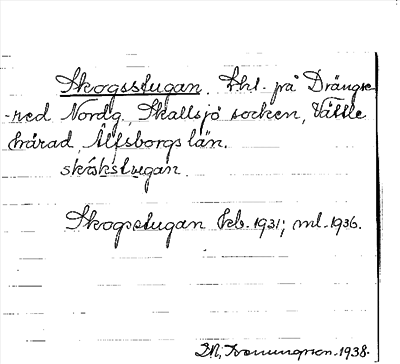 Skogsstugan. Lht. på Drängse-
red Nordg. Skallsjö socken, Vättle
härad, Älfsborgs län.
skɷ́kstugan.
Skogsstugan Ekb. 1931; ml. 1936.
1938.